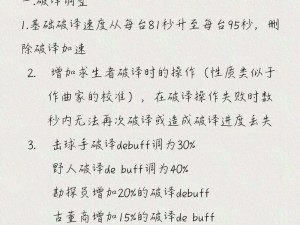 一.破译调整
1.基础破译速度从每台81秒升至每台95秒，删
除破译加速
2. 增加求生者破译时的操作（性质类似于
作曲家的校准），在破译操作失败时数
秒内无法再次破译或造成破译进度丢失
3. 击球手破译debuff调为30%
野人破译de buff调为40%
勘探员增加20%的破译debuff
古董商增加15%的破译de buff